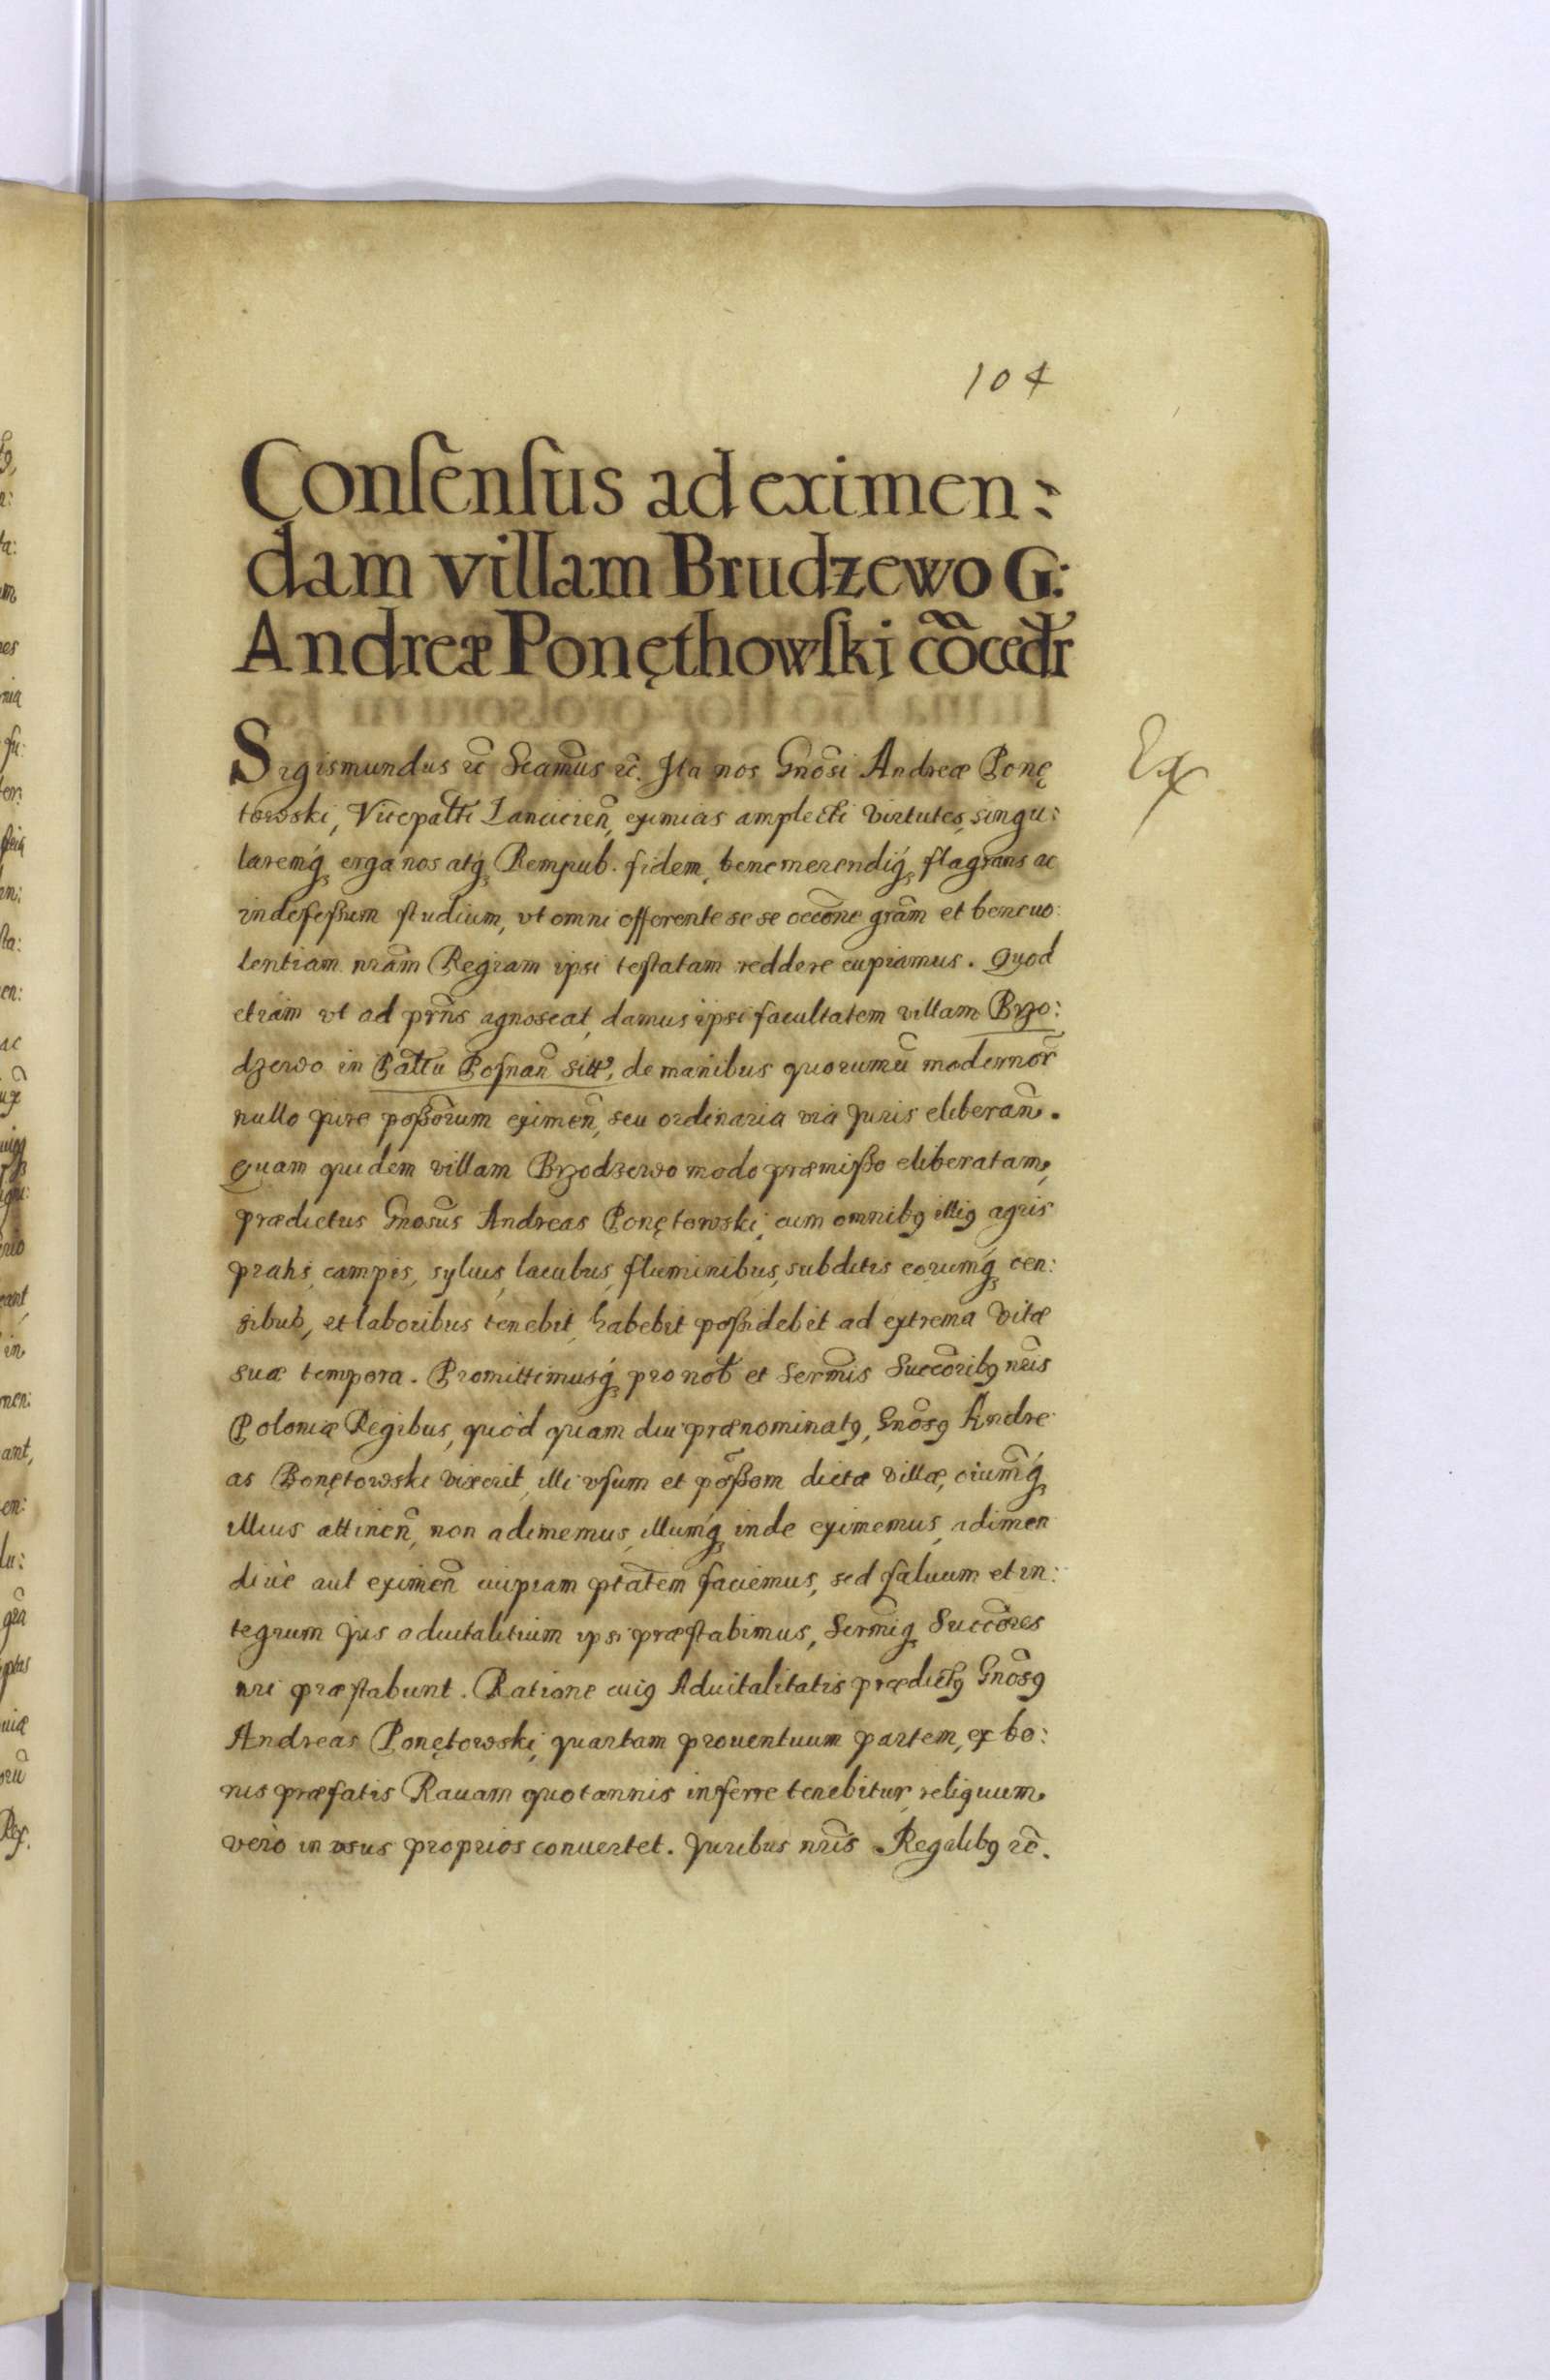 104
Consensus ad eximen:
dam villam Brudzewo G:
Andreæ Ponęthowski cõcedr̃
Sigismundus &c̃ Scam̃us &c̃. Ita nos Gnõsi Andreæ Ponę
towski, Vicepaltĩ Lancicieñ, eximias amplecti virtutes, singu:
laremq́ȝ erga nos atqȝ Rempub. fidem, benemerendiq́ȝ flagrans ac
indefessum studium, vt omni offerente se se occõne grãm et beneuo:
lentiam nrãm Regiam ipsi testatam reddere cupiamus. Quod
etiam vt ad prñs agnoscat, damus ipsi facultatem villam Brzo:
dzewo in Paltũ Posnañ sitt, de manibus quorumũ modernor̃
nullo jure possõrum eximeñ, seu ordinaria via Juris eliberañ.
Quam quidem villam Brzodzewo modo præmisso eliberatam,
prædictus Gnosũs Andreas Ponętowski, cum omnibꝯ illiꝯ agris
pratis, campis, syluis, lacubus, fluminibus, subditis eorumq́ȝ cen:
sibus, et laboribus tenebit, habebit possidebit ad extrema vitæ
suæ tempora. Promittimusq́ȝ pro nob̃ et Serm̃is Succõribꝯ nr̃is
Poloniæ Regibus, quòd quam diu prænominatꝯ, Gnõsꝯ Andre
as Ponętowski vixerit, illi vsum et põssom dictæ villæ, oium̃q́ȝ
illius attineñ, non adimemus, illumq́ȝ inde eximemus, adimen
diuè aut eximeñ cuipiam ptãtem faciemus, sed saluum et in:
tegrum Jus aduitalitium ipsi præstabimus, Serm̃iqȝ Succõres
nri præstabunt. Ratione cuiꝯ Aduitalitatis prædictꝯ Gnõsꝯ
Andreas Ponętowski, quartam prouentuum partem, ex bo:
nis præfatis Rauam quotannis inferre tenebitur, reliquum
verò in vsus proprios conuertet. Juribus nr̃is Regalibꝯ &c̃.
Ex